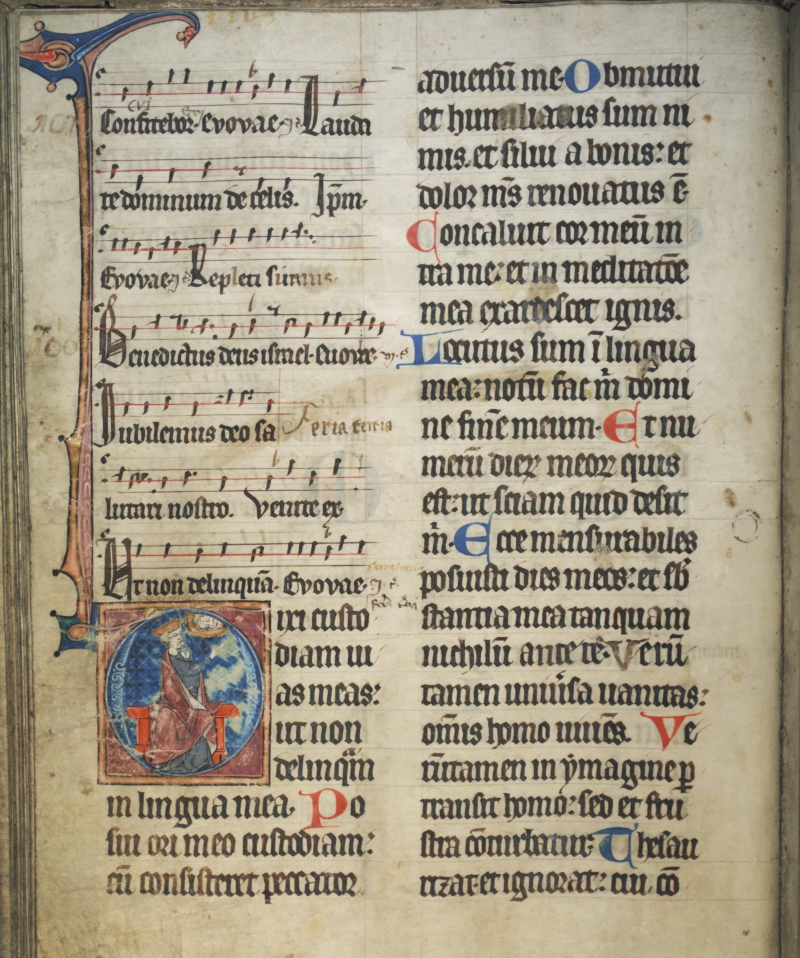 Confitebor. Evovae. Lauda
te dominum de celis. Ipm.
Evovae. Repleti sumus
Benedictus deus israel. Euovae.
Iubilemus deo sa Feria tertia
lutari nostro. Venite ex
Ut non delinquā. Evovae.
Dixi custo
diam ui
as meas:
ut non
delinquam
in lingua mea. Po
sui ori meo custodiam:
cū consisteret peccator
aduersū me. Obmutui
et humiliatus sum ni
mis. et silui a bonis: et
dolor ms renouatus ē
Concaluit cor meū in
tra me: et in meditatōe
mea exardescet ignis.
Locutus sum ī lingua
mea: notū fac m domi
ne finē meum. Et nu
merū dierꝝ meorꝝ quis
est: ut sciam quid desit
m. Ecce mensurabiles
posuisti dies meos: et sb
stantia mea tanquam
nichilū ante te. Verū
tamen uniuīsa uanitas:
omīs homo uiuēs. Ve
rūtamen in ymagine ꝑ
transit homo: sed et frū
stra cōturbatur. Thesau
rizat et ignorat: cui cō